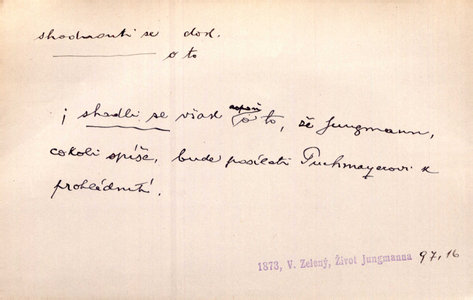 shodnouti se dok.
o to
i shodli se však aspoň o to, že Jungmann,
cokoli spíše, bude posílati Puchmayerovi k
prohlédnutí.
1873, V. Zelený, Život Jungmanna 97, 16